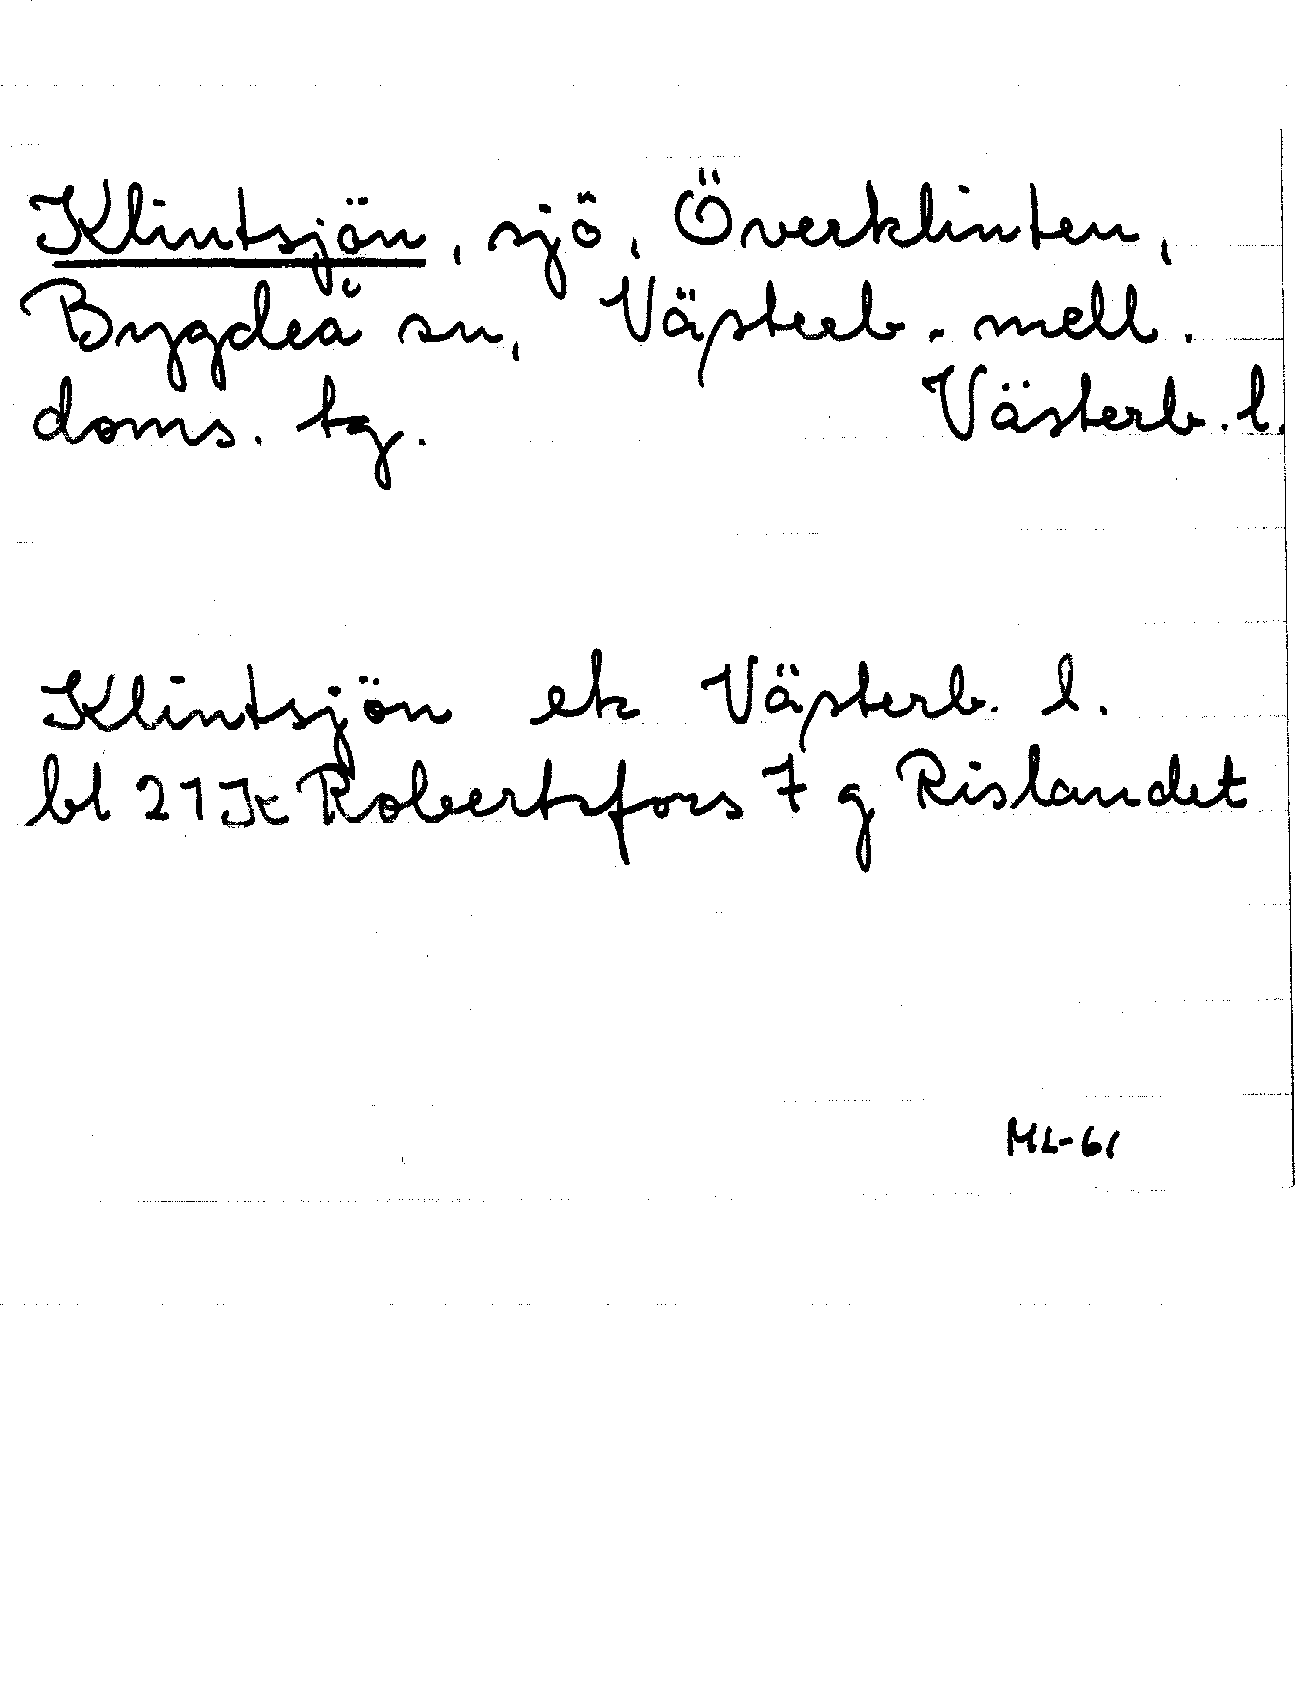 Klintsjön, sjö, Överklinten,
Bygdeå sn, Västerb. mell.
doms. tg. Västerb. l.
Klintsjön ek Västerb. l.
bl 21 K Robertsfors 7 g Rislandet
ML-61